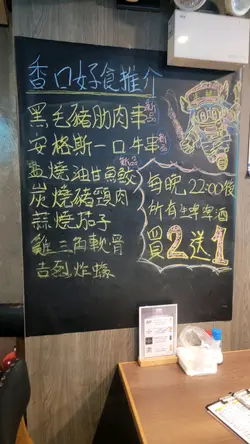 香口好食推介
黑毛豬肋肉串 新品
安格斯一口牛串 新品
鹽燒油甘魚鮫 新品
炭燒豬頸肉
蒜燒茄子
雞三角軟骨
吉列炸蠔
每晚，22:00後
所有生啤啤酒
買2送1